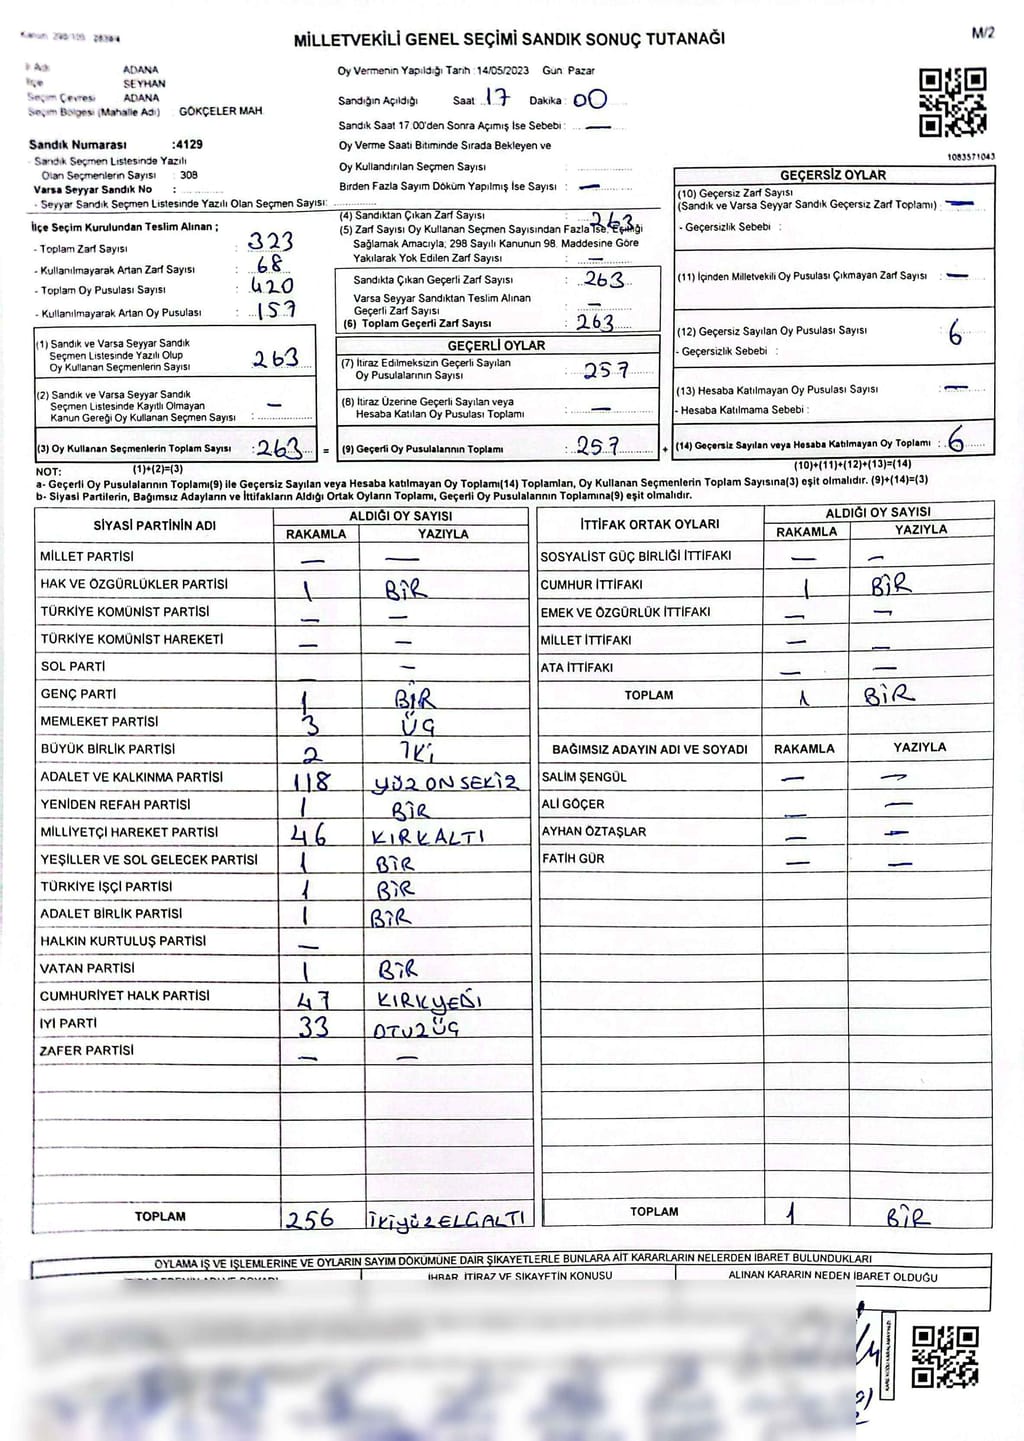 Kanun: 298/105, 2839/4
MİLLETVEKİLİ GENEL SEÇİMİ SANDIK SONUÇ TUTANAĞI
M/2
İl Adı : ADANA
İlçe : SEYHAN
Seçim Çevresi : ADANA
Seçim Bölgesi (Mahalle Adı) : GÖKÇELER MAH
Oy Vermenin Yapıldığı Tarih :14/05/2023 Gün Pazar
Sandığın Açıldığı Saat : 17 Dakika : 00
Sandık Saat 17.00'den Sonra Açımış İse Sebebi : —
Oy Verme Saati Bitiminde Sırada Bekleyen ve
Oy Kullandırılan Seçmen Sayısı :
Birden Fazla Sayım Döküm Yapılmış İse Sayısı : —
1083571043
Sandık Numarası :4129
- Sandık Seçmen Listesinde Yazılı
Olan Seçmenlerin Sayısı : 308
Varsa Seyyar Sandık No :
- Seyyar Sandık Seçmen Listesinde Yazılı Olan Seçmen Sayısı:
İlçe Seçim Kurulundan Teslim Alınan ;
- Toplam Zarf Sayısı : 323
- Kullanılmayarak Artan Zarf Sayısı : 68
- Toplam Oy Pusulası Sayısı : 420
- Kullanılmayarak Artan Oy Pusulası : 157
(1) Sandık ve Varsa Seyyar Sandık
Seçmen Listesinde Yazılı Olup
Oy Kullanan Seçmenlerin Sayısı : 263
(2) Sandık ve Varsa Seyyar Sandık
Seçmen Listesinde Kayıtlı Olmayan
Kanun Gereği Oy Kullanan Seçmen Sayısı : —
(3) Oy Kullanan Seçmenlerin Toplam Sayısı : 263 =
(4) Sandıktan Çıkan Zarf Sayısı : 263
(5) Zarf Sayısı Oy Kullanan Seçmen Sayısından Fazla İse: Eşitliği
Sağlamak Amacıyla; 298 Sayılı Kanunun 98. Maddesine Göre
Yakılarak Yok Edilen Zarf Sayısı : —
Sandıkta Çıkan Geçerli Zarf Sayısı : 263
Varsa Seyyar Sandıktan Teslim Alınan
Geçerli Zarf Sayısı : —
(6) Toplam Geçerli Zarf Sayısı : 263
GEÇERLİ OYLAR
(7) İtiraz Edilmeksizin Geçerli Sayılan
Oy Pusulalarının Sayısı : 257
(8) İtiraz Üzerine Geçerli Sayılan veya
Hesaba Katılan Oy Pusulası Toplamı : —
(9) Geçerli Oy Pusulalarının Toplamı : 257 +
GEÇERSİZ OYLAR
(10) Geçersiz Zarf Sayısı
(Sandık ve Varsa Seyyar Sandık Geçersiz Zarf Toplamı) : —
- Geçersizlik Sebebi :
(11) İçinden Milletvekili Oy Pusulası Çıkmayan Zarf Sayısı : —
(12) Geçersiz Sayılan Oy Pusulası Sayısı : 6
- Geçersizlik Sebebi :
(13) Hesaba Katılmayan Oy Pusulası Sayısı : —
- Hesaba Katılmama Sebebi :
(14) Geçersiz Sayılan veya Hesaba Katılmayan Oy Toplamı : 6
NOT: (1)+(2)=(3)
(10)+(11)+(12)+(13)=(14)
a- Geçerli Oy Pusulalarının Toplamı(9) ile Geçersiz Sayılan veya Hesaba katılmayan Oy Toplamı(14) Toplamları, Oy Kullanan Seçmenlerin Toplam Sayısına(3) eşit olmalıdır. (9)+(14)=(3)
b- Siyasi Partilerin, Bağımsız Adayların ve İttifakların Aldığı Ortak Oyların Toplamı, Geçerli Oy Pusulalarının Toplamına(9) eşit olmalıdır.
SİYASİ PARTİNİN ADI ALDIĞI OY SAYISI
RAKAMLA YAZIYLA
MİLLET PARTİSİ — —
HAK VE ÖZGÜRLÜKLER PARTİSİ 1 BİR
TÜRKİYE KOMÜNİST PARTİSİ — —
TÜRKİYE KOMÜNİST HAREKETİ — —
SOL PARTİ — —
GENÇ PARTİ 1 BİR
MEMLEKET PARTİSİ 3 ÜÇ
BÜYÜK BİRLİK PARTİSİ 2 İKİ
ADALET VE KALKINMA PARTİSİ 118 YÜZ ONSEKİZ
YENİDEN REFAH PARTİSİ 1 BİR
MİLLİYETÇİ HAREKET PARTİSİ 46 KIRKALTI
YEŞİLLER VE SOL GELECEK PARTİSİ 1 BİR
TÜRKİYE İŞÇİ PARTİSİ 1 BİR
ADALET BİRLİK PARTİSİ 1 BİR
HALKIN KURTULUŞ PARTİSİ —
VATAN PARTİSİ 1 BİR
CUMHURİYET HALK PARTİSİ 47 KIRKYEDİ
İYİ PARTİ 33 OTUZÜÇ
ZAFER PARTİSİ — —
TOPLAM 256 İKİYÜZELLİALTI
İTTİFAK ORTAK OYLARI ALDIĞI OY SAYISI
RAKAMLA YAZIYLA
SOSYALİST GÜÇ BİRLİĞİ İTTİFAKI — —
CUMHUR İTTİFAKI 1 BİR
EMEK VE ÖZGÜRLÜK İTTİFAKI — —
MİLLET İTTİFAKI — —
ATA İTTİFAKI — —
TOPLAM 1 BİR
BAĞIMSIZ ADAYIN ADI VE SOYADI RAKAMLA YAZIYLA
SALİM ŞENGÜL — —
ALİ GÖÇER — —
AYHAN ÖZTAŞLAR — —
FATİH GÜR — —
TOPLAM 1 BİR
OYLAMA İŞ VE İŞLEMLERİNE VE OYLARIN SAYIM DÖKÜMÜNE DAİR ŞİKAYETLERLE BUNLARA AİT KARARLARIN NELERDEN İBARET BULUNDUKLARI
İHBAR, İTİRAZ VE ŞİKAYETİN KONUSU ALINAN KARARIN NEDEN İBARET OLDUĞU